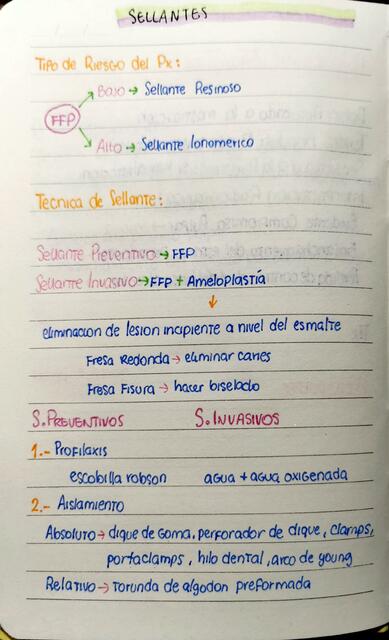 SELLANTES
Tipo de Riesgo del Px:
Bajo → Sellante Resinoso
FFP
Alto → Sellante Ionomerico
Tecnica de Sellante:
Sellante Preventivo → FFP
Sellante Invasivo → FFP + Ameloplastía
↓
eliminacion de lesion incipiente a nivel del esmalte
Fresa Redonda → eliminar caries
Fresa Fisura → hacer biselado
S. PREVENTIVOS S. INVASIVOS
1.- Profilaxis
escobilla robson agua + agua oxigenada
2.- Aislamiento
Absoluto → dique de goma, perforador de dique, clamps,
portaclamps, hilo dental, arco de young
Relativo → Torunda de algodon preformada